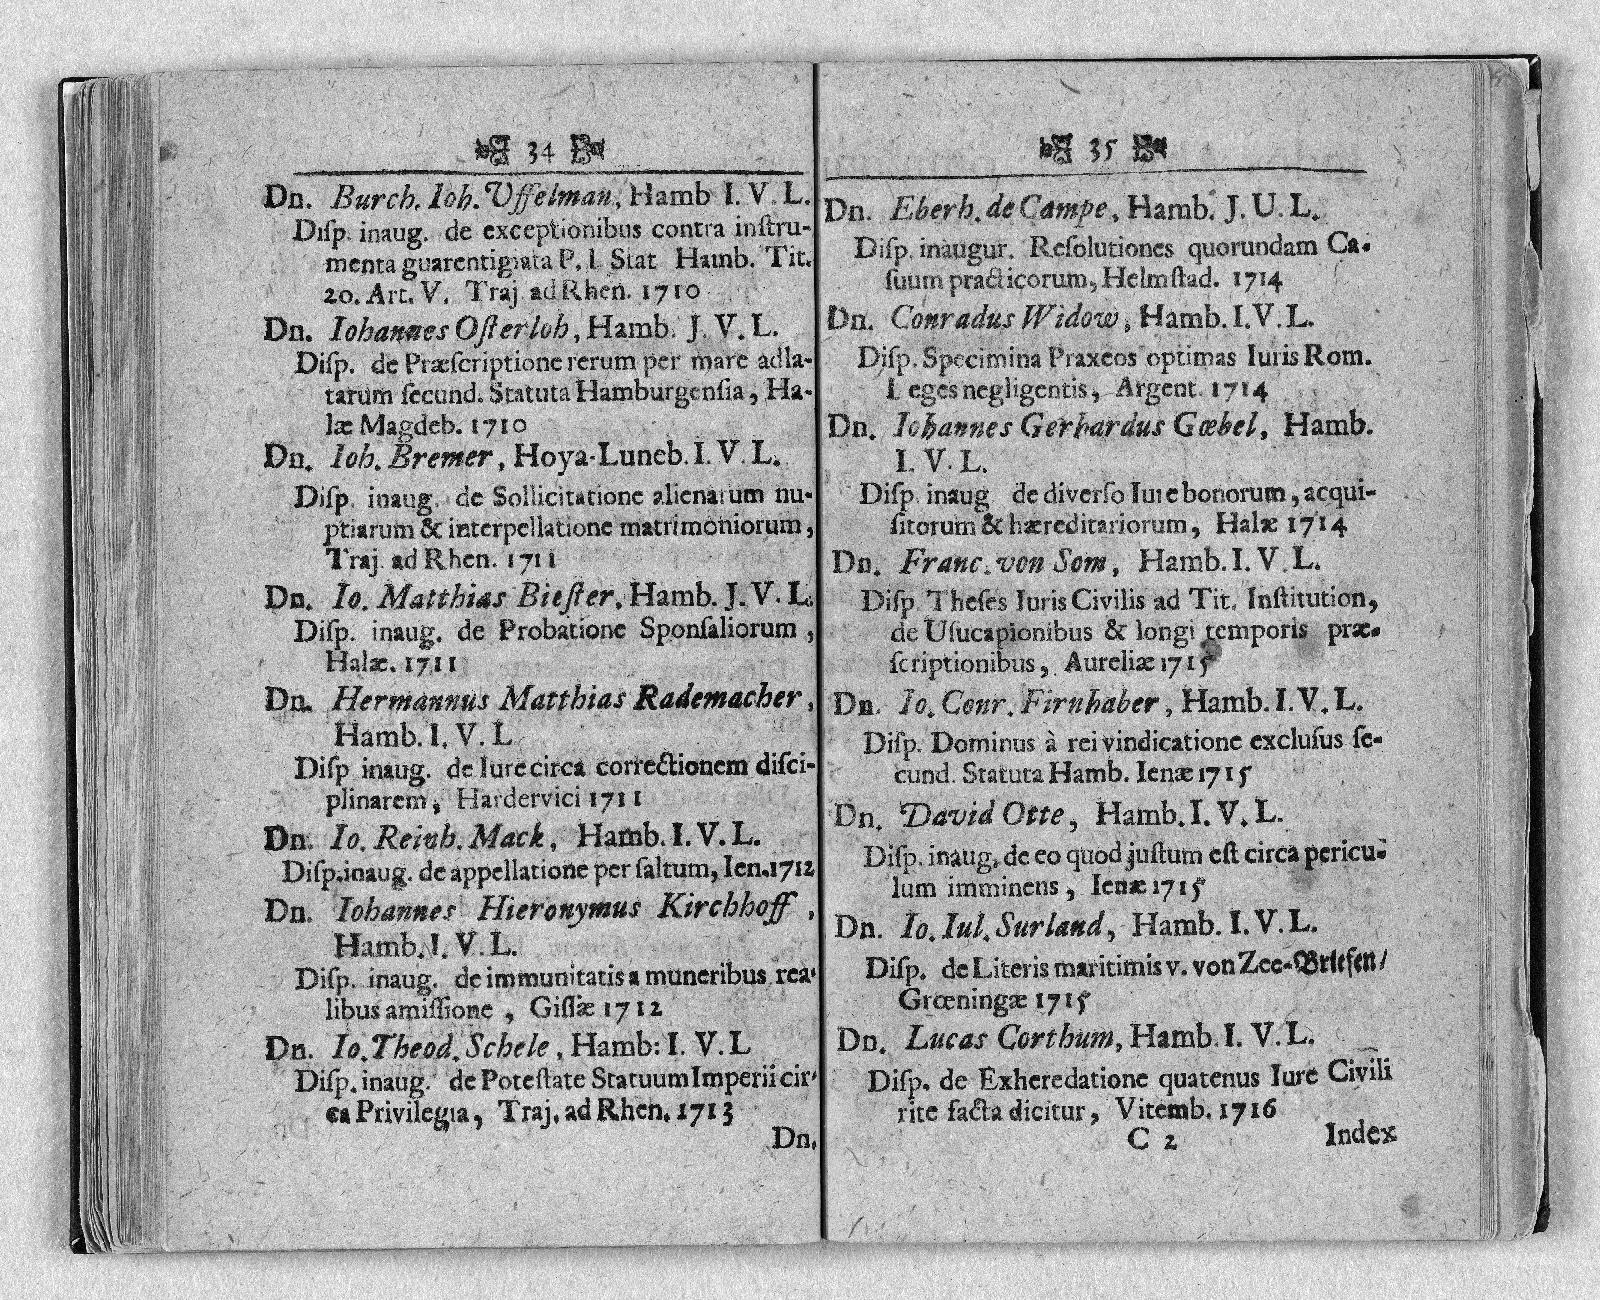 34
Dn. Burch. Ioh. Uffelman, Hamb I. V. L.
Diſp. inaug. de exceptionibus contra inſtru-
menta guarentigiata P. I. Stat Hamb. Tit.
20. Art. V. Traj. ad Rhen. 1710
Dn. Iohannes Oſterloh, Hamb. J. V. L.
Diſp. de Præſcriptione rerum per mare adla-
tarum ſecund. Statuta Hamburgenſia, Ha-
læ Magdeb. 1710
Dn. Ioh. Bremer, Hoya-Luneb. I. V. L.
Diſp. inaug. de Sollicitatione alienarum nu-
ptiarum & interpellatione matrimoniorum,
Traj. ad Rhen. 1711
Dn. Io. Matthias Bieſter. Hamb. J. V. L.
Diſp. inaug. de Probatione Sponſaliorum,
Halæ. 1711
Dn. Hermannus Matthias Rademacher,
Hamb. I. V. L
Diſp inaug. de Iure circa correctionem diſci-
plinarem, Hardervici 1711
Dn. Io. Reinh. Mack, Hamb. I. V. L.
Diſp. inaug. de appellatione per ſaltum, Ien. 1712
Dn. Iohannes Hieronymus Kirchhoff,
Hamb. I. V. L.
Diſp. inaug. de immunitatis a muneribus rea-
libus amiſſione, Giſſæ 1712
Dn. Io. Theod. Schele, Hamb: I. V. L
Diſp. inaug. de Poteſtate Statuum Imperii cir-
ca Privilegia, Traj. ad Rhen. 1713
Dn.
35
Dn. Eberh. de Campe, Hamb. J. U. L.
Diſp. inaugur. Reſolutiones quorundam Ca-
ſuum practicorum, Helmſtad. 1714
Dn. Conradus Widow, Hamb. I. V. L.
Diſp. Specimina Praxeos optimas Iuris Rom.
Leges negligentis, Argent. 1714
Dn. Iohannes Gerhardus Gœbel, Hamb.
I. V. L.
Diſp. inaug de diverſo Iure bonorum, acqui-
ſitorum & hæreditariorum, Halæ 1714
Dn. Franc. von Som, Hamb. I. V. L.
Diſp. Theſes Iuris Civilis ad Tit. Inſtitution,
de Uſucapionibus & longi temporis præ-
ſcriptionibus, Aureliæ 1715
Dn. Io. Conr. Firnhaber, Hamb. I. V. L.
Diſp. Dominus à rei vindicatione excluſus ſe-
cund. Statuta Hamb. Ienæ 1715
Dn. David Otte, Hamb. I. V. L.
Diſp. inaug. de eo quod juſtum eſt circa pericu-
lum imminens, Ienæ 1715
Dn. Io. Iul. Surland, Hamb. I. V. L.
Diſp. de Literis maritimis v. von Zee-Briefen/
Grœningæ 1715
Dn. Lucas Corthum, Hamb. I. V. L.
Diſp. de Exheredatione quatenus Iure Civili
rite facta dicitur, Vitemb. 1716
C 2 Index